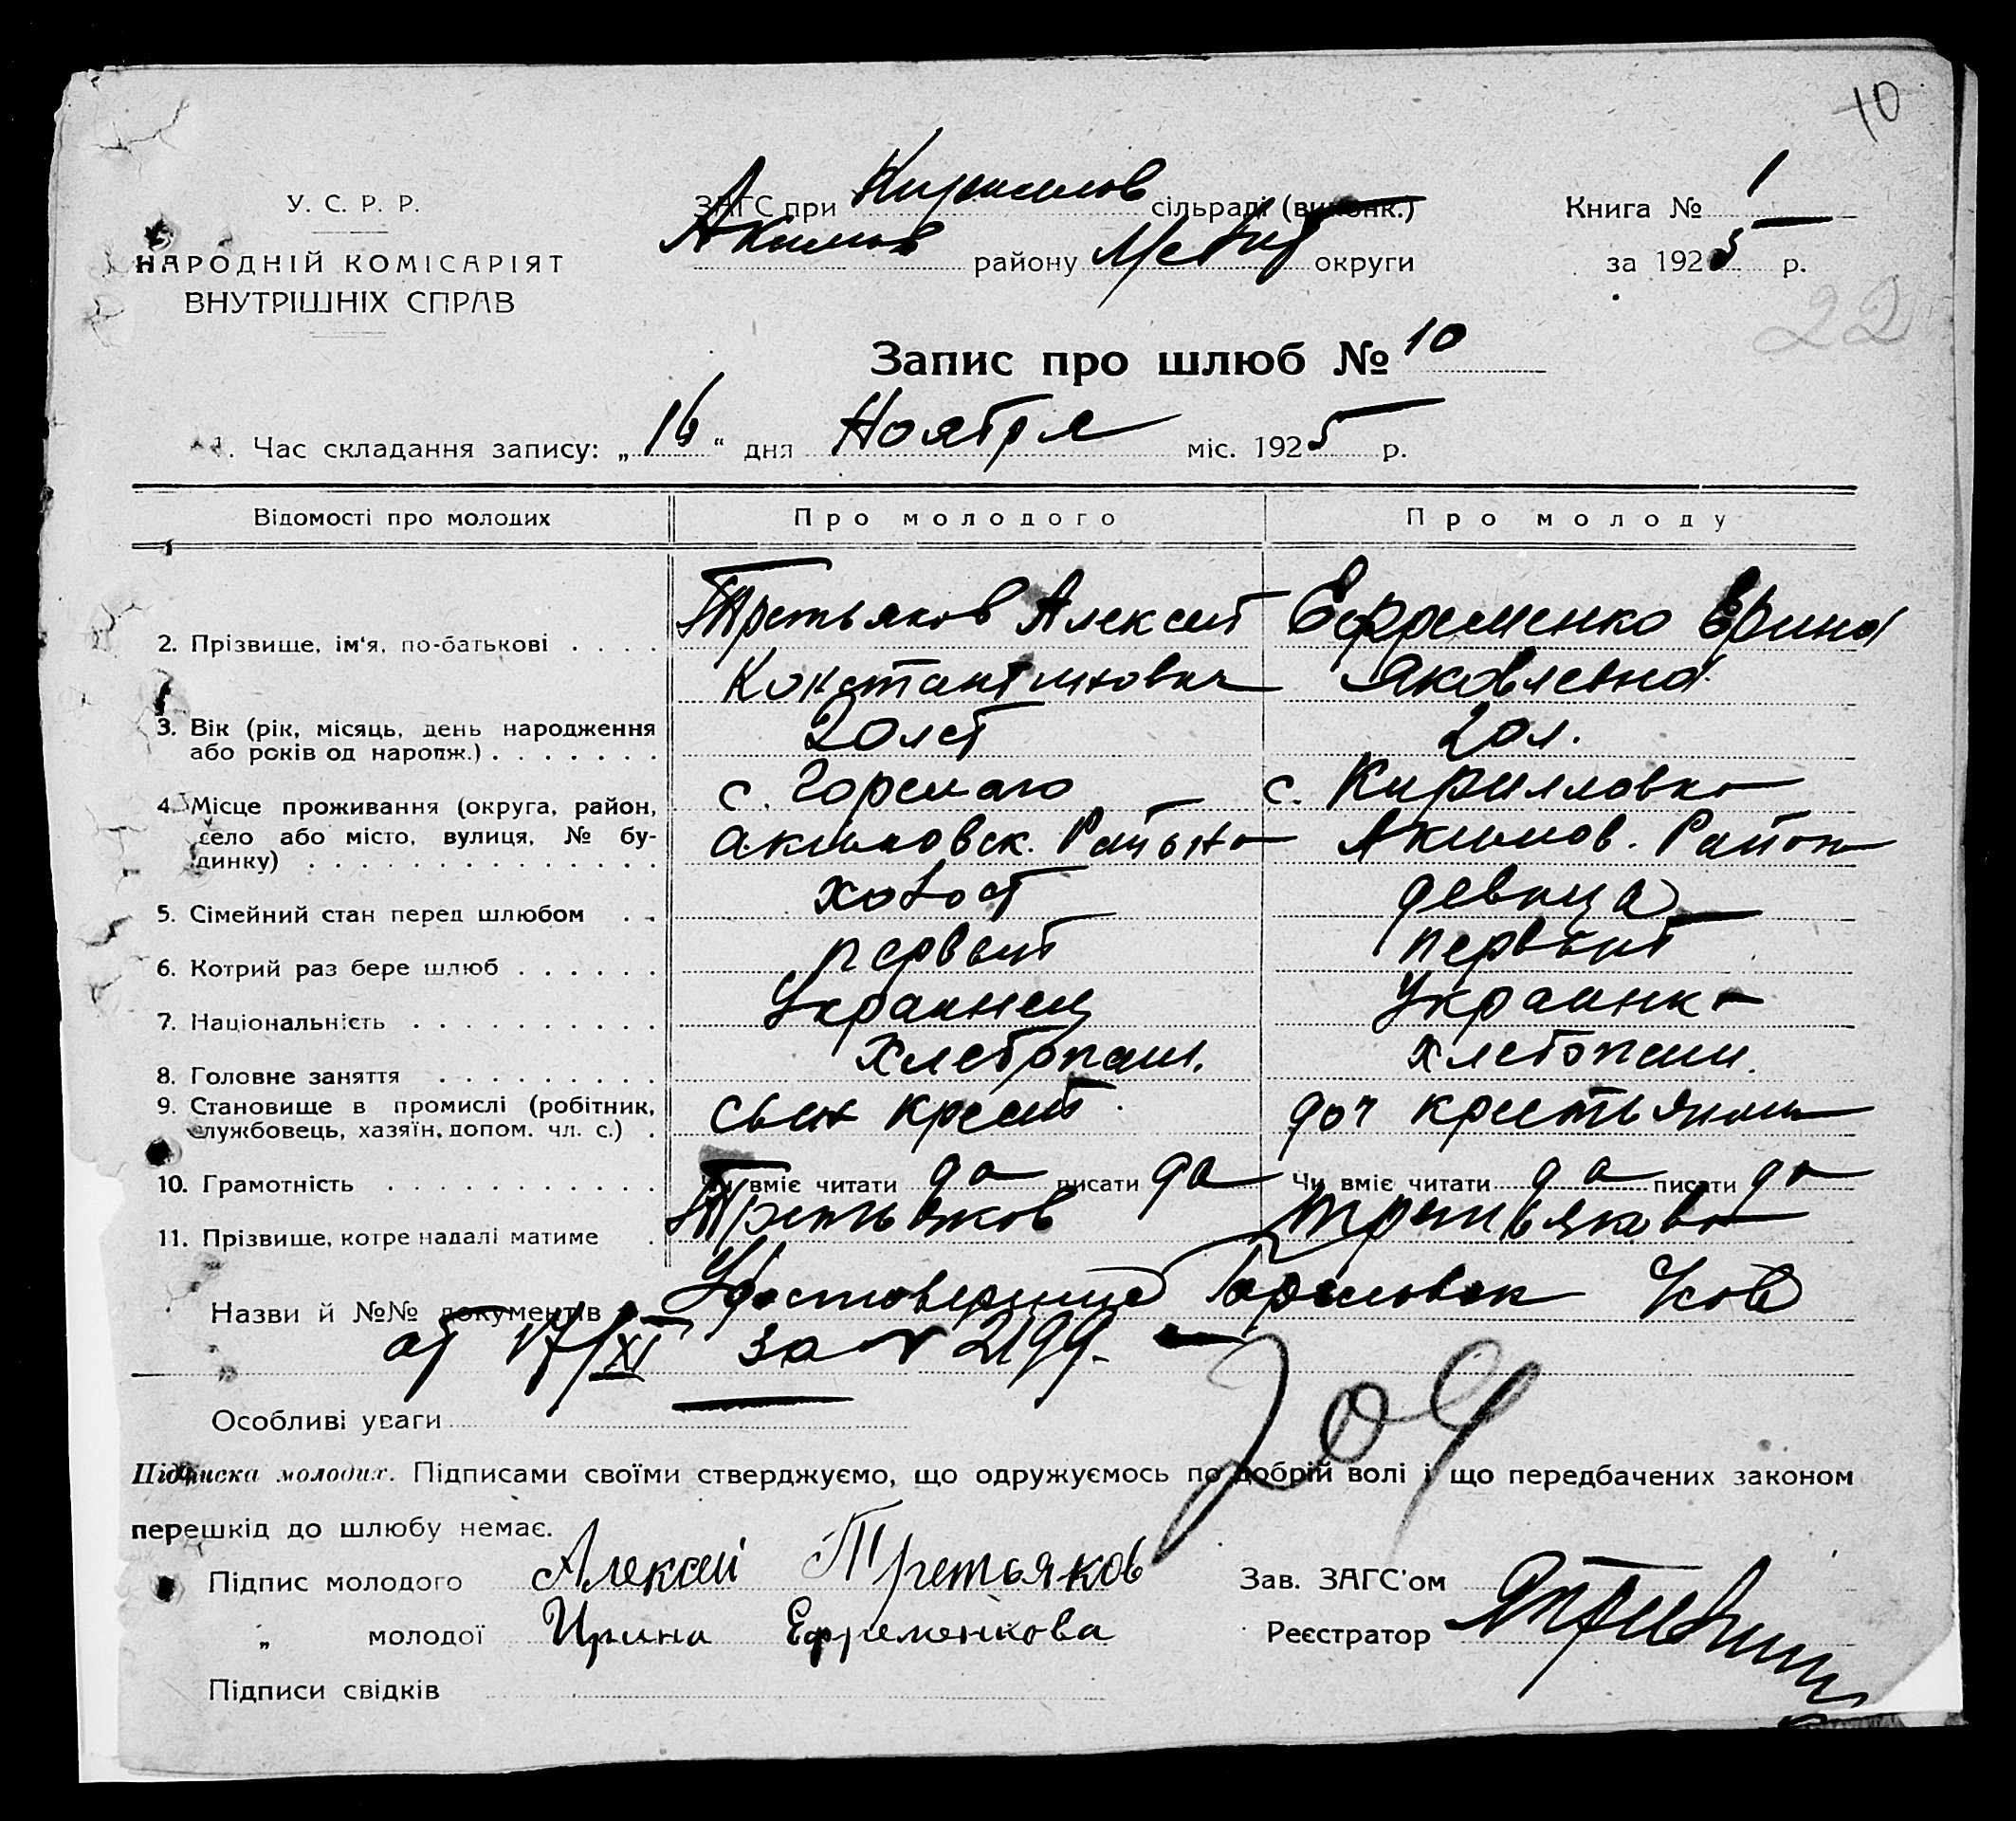 10
У. С. Р. Р.
НАРОДНІЙ КОМІСАРІЯТ
ВНУТРІШНІХ СПРАВ
ЗАГС при Кирилов сільраді (виконк.)
Акимов району Мелит округи
Книга № 1
за 1925 р.
22
Запис про шлюб № 10
1. Час складання запису: „16“ дня Ноября міс. 1925 р.
Відомості про молодих Про молодого Про молоду
2. Прізвище, ім'я, по-батькові . . . . Третьяков Алексей Ефременко Ерина
Константинович Яковлевна
3. Вік (рік, місяць, день народження
або років од народж.) . . . . . . . 20 лет 20 л.
4. Місце проживання (округа, район, с. Горелаго с. Кирилловка
село або місто, вулиця, № бу-
динку) . . . . . . . . . . . . . . Акимовск. Района Акимов. Район
5. Сімейний стан перед шлюбом . . холост девица
6. Котрий раз бере шлюб . . . . . . первый первый
7. Національність . . . . . . . . . . Украинец Украинка
8. Головне заняття . . . . . . . . . Хлебопаш. Хлебопаш.
9. Становище в промислі (робітник,
службовець, хазяїн, допом. чл. с.) . сын крест. доч крестьянин
10. Грамотність . . . . . . . . . . . . Чи вміє читати да писати да Чи вміє читати да писати да
11. Прізвище, котре надалі матиме . Третьяков Третьякова
Назви й №№ документів Удостоверение Горіловск
от 17/XI за № 2199.
Особливі уваги
204
Підписка молодих. Підписами своїми стверджуємо, що одружуємось по добрій волі і що передбачених законом
перешкід до шлюбу немає.
Підпис молодого Алексей Третьяков
Зав. ЗАГС'ом
„ молодої Ирина Ефременкова
Реєстратор
Підписи свідків